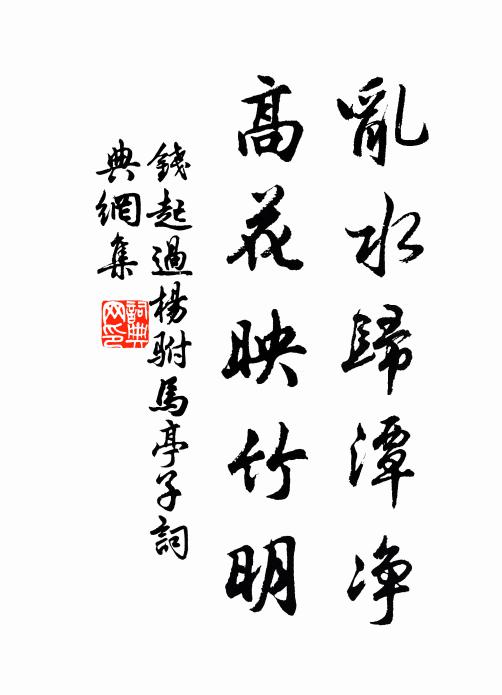 亂水歸潭净
高花映竹明
錢起過楊駙馬亭子詞
典網集
詞典
网印